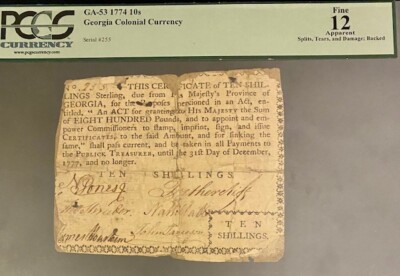 PCGS
CURRENCY
www.pcgscurrency.com
GA-53 1774 10s
Georgia Colonial Currency
Serial #235
Fine
12
Apparent
Splits, Tears, and Damage; Backed
No. 235 THIS CERTIFICATE of TEN SHIL-
LINGS Sterling, due from his Majesty's Province of
GEORGIA, for the Purposes mentioned in an Act, en-
titled, "An ACT for granting to His MAJESTY the Sum
of EIGHT HUNDRED Pounds, and to appoint and em-
power Commissioners to stamp, imprint, sign, and issue
CERTIFICATES, to the said Amount, and for sinking the
same," shall pass current, and be taken in all Payments
to the PUBLICK TREASURER, until the 31st Day of December,
1777, and no longer.
TEN SHILLINGS.
N Jones
TEN
SHILLINGS.